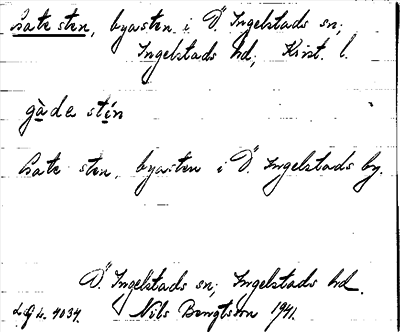 Gate sten, byasten i Ö. Ingelstads sn;
Ingelstads hd; Krist. l.
gàde stín
Gate sten, byasten i Ö. Ingelstads by.
Ö. Ingelstads sn; Ingelstads hd.
LGL. 4034. Nils Bengtsson 1941.